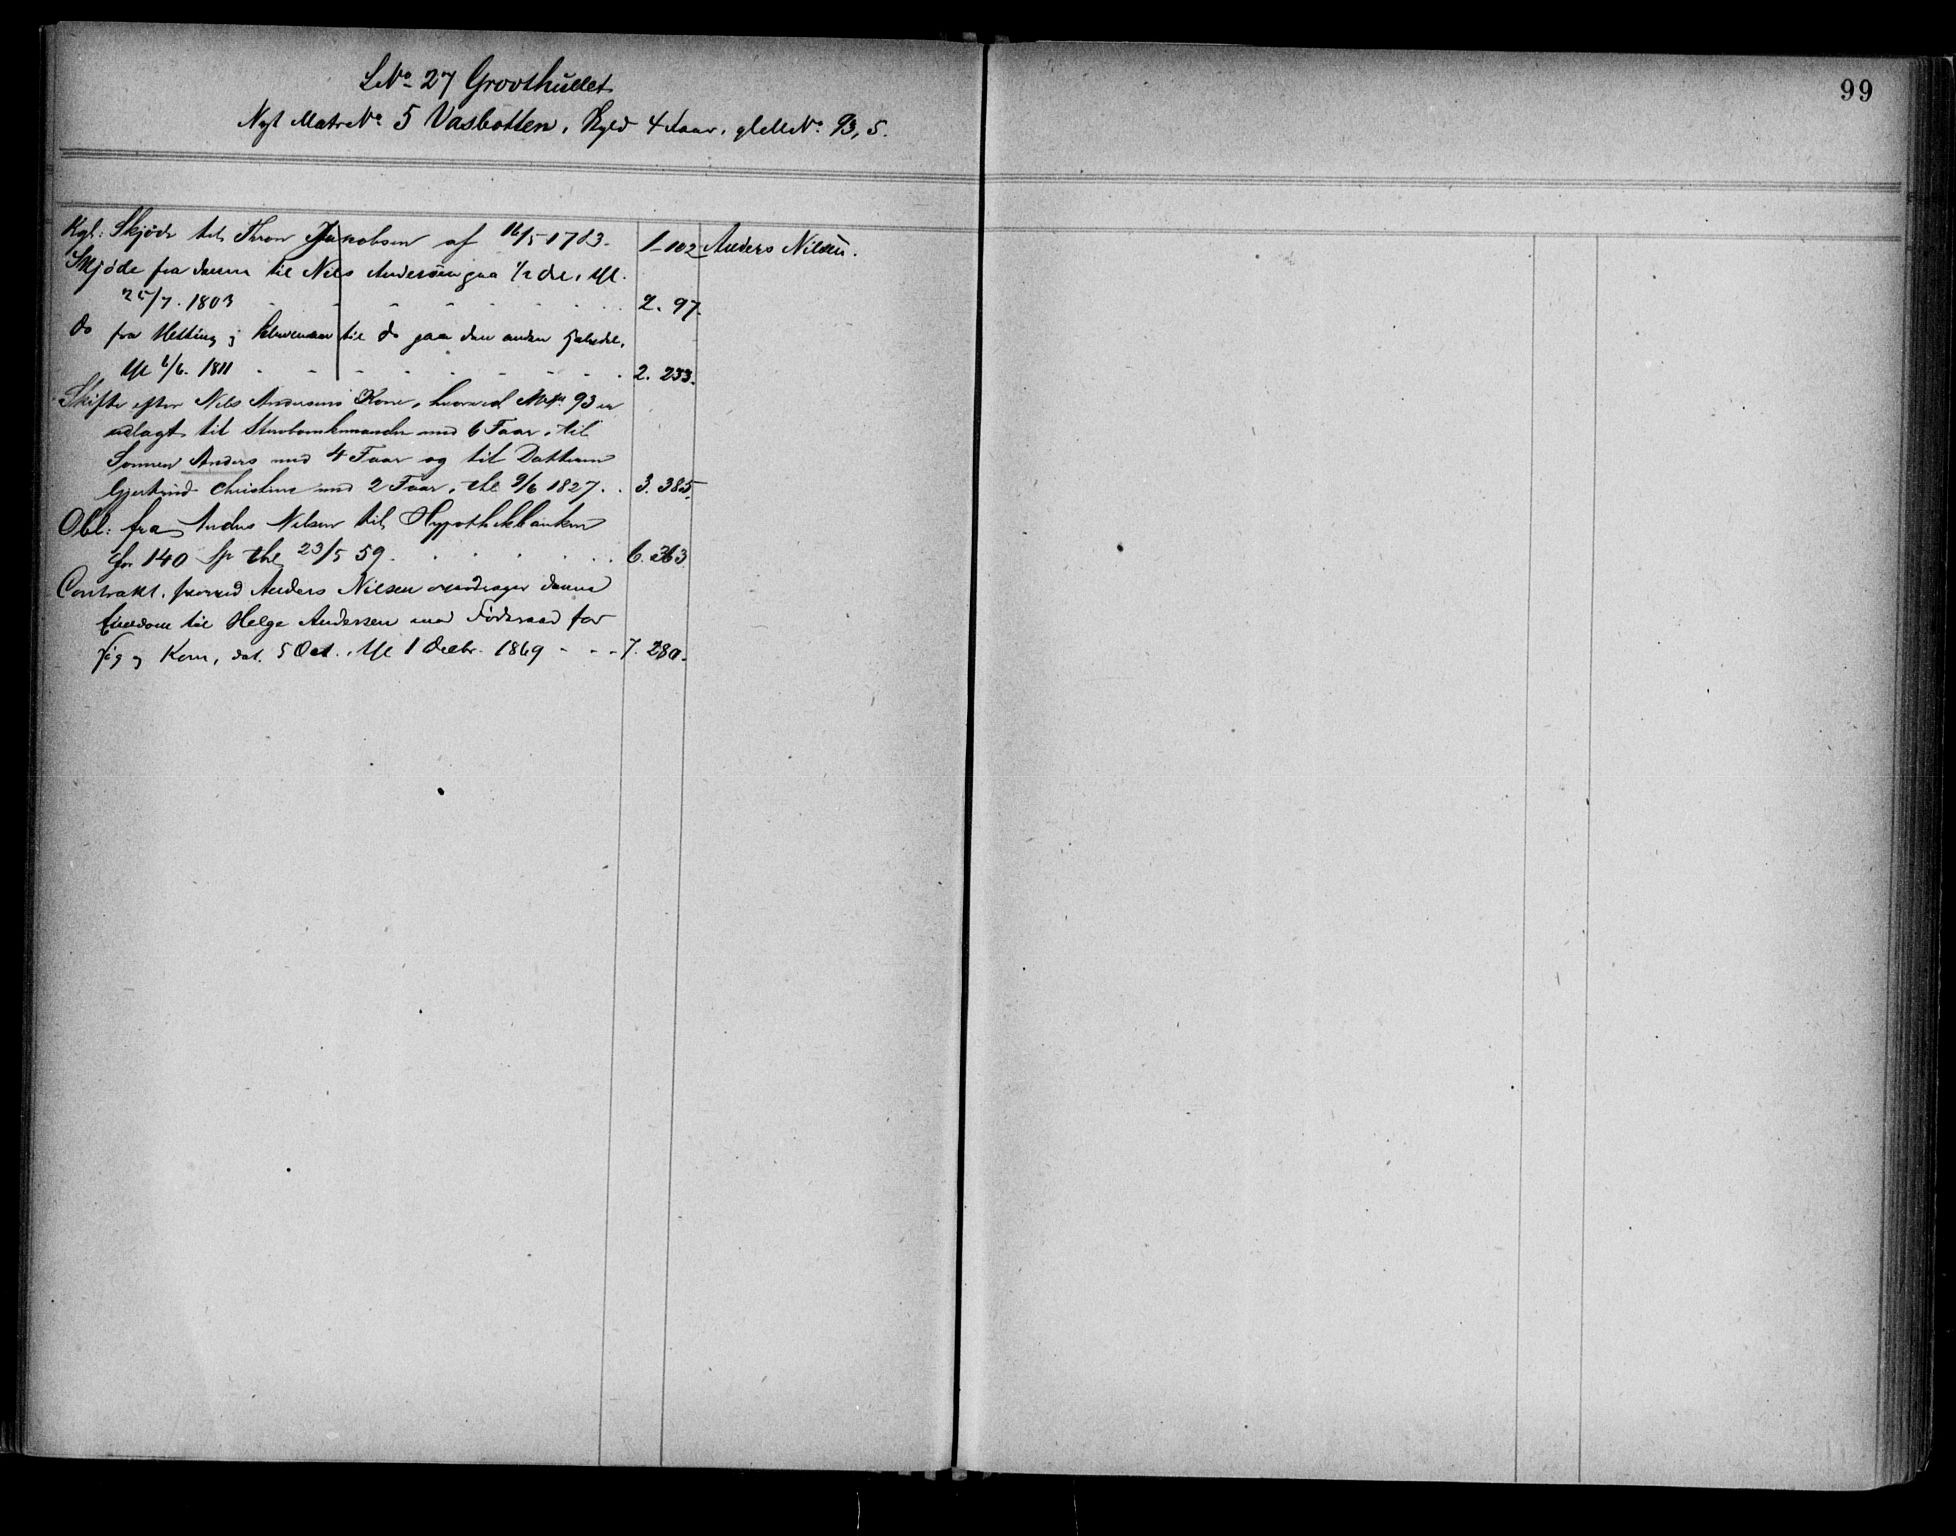 99
LNo 27 Grovthullet
Nyt MatrNo 5 Vasbotten, Skyld 4 Kaar, glMNo 93, 5.
Kgl: Skjøde til Thron Jakobsen af 16/5 1783. 1-102 Anders Nilsen.
Skjøde fra denne til Nils Andersen paa 1/2 del, thl.
25/7. 1803 2. 97.
do fra Hetting og til do paa den anden halvdel,
thl 6/6. 1811 2. 233.
Skifte efter Nils Andersens Kone, hvorved MNo 93 er
udlagt til Sterbomkemanden med 6 Kaar, til
Sønnen Anders med 4 Kaar og til Datteren
Gjertrud Christine med 2 Kaar, thl 9/6 1827. 3. 385.
Obl: fra Anders Nilsen til Hypothekbanken
for 140 sp thl 23/5 59. 6. 363
Contrakt, hvorved Anders Nilsen overdrager denne
Eiendom til Helge Andersen mod Føderaad for
sig og Kone, dat. 5 Oct., thl 1 Decbr. 1869 7. 280.